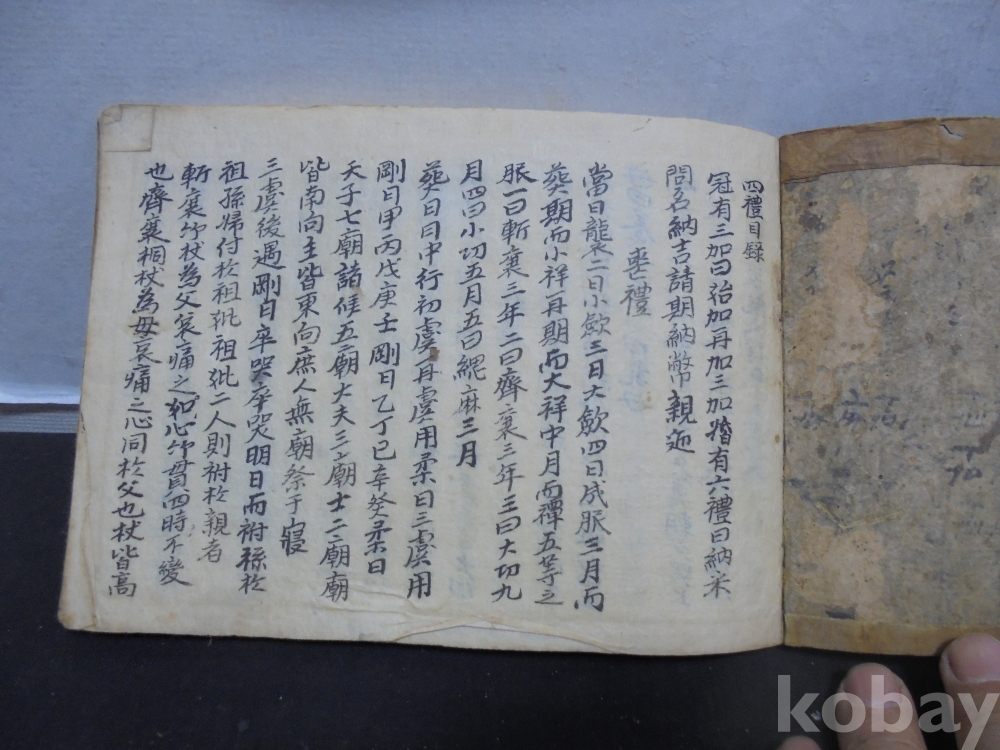 四禮目錄
冠有三加曰始加再加三加婚有六禮曰納采
問名納吉請期納幣親迎
喪禮
當日襲二日小斂三日大斂四日成服三月而
葬期而小祥再期而大祥中月而禫五等之
服一曰斬衰三年二曰齊衰三年三曰大功九
月四曰小功五月五曰緦麻三月
葬日日中行初虞再虞用柔日三虞用
剛日甲丙戊庚壬剛日乙丁巳辛癸柔日
天子七廟諸侯五廟大夫三廟士二廟廟
皆南向主皆東向庶人無廟祭于寢
三虞後遇剛日卒哭卒哭明日而祔孫於
祖孫婦付於祖妣祖妣二人則祔於親者
斬衰竹杖為父哀痛之心竹貫四時不變
也齊衰桐杖為母哀痛之心同於父也杖皆高
kobay